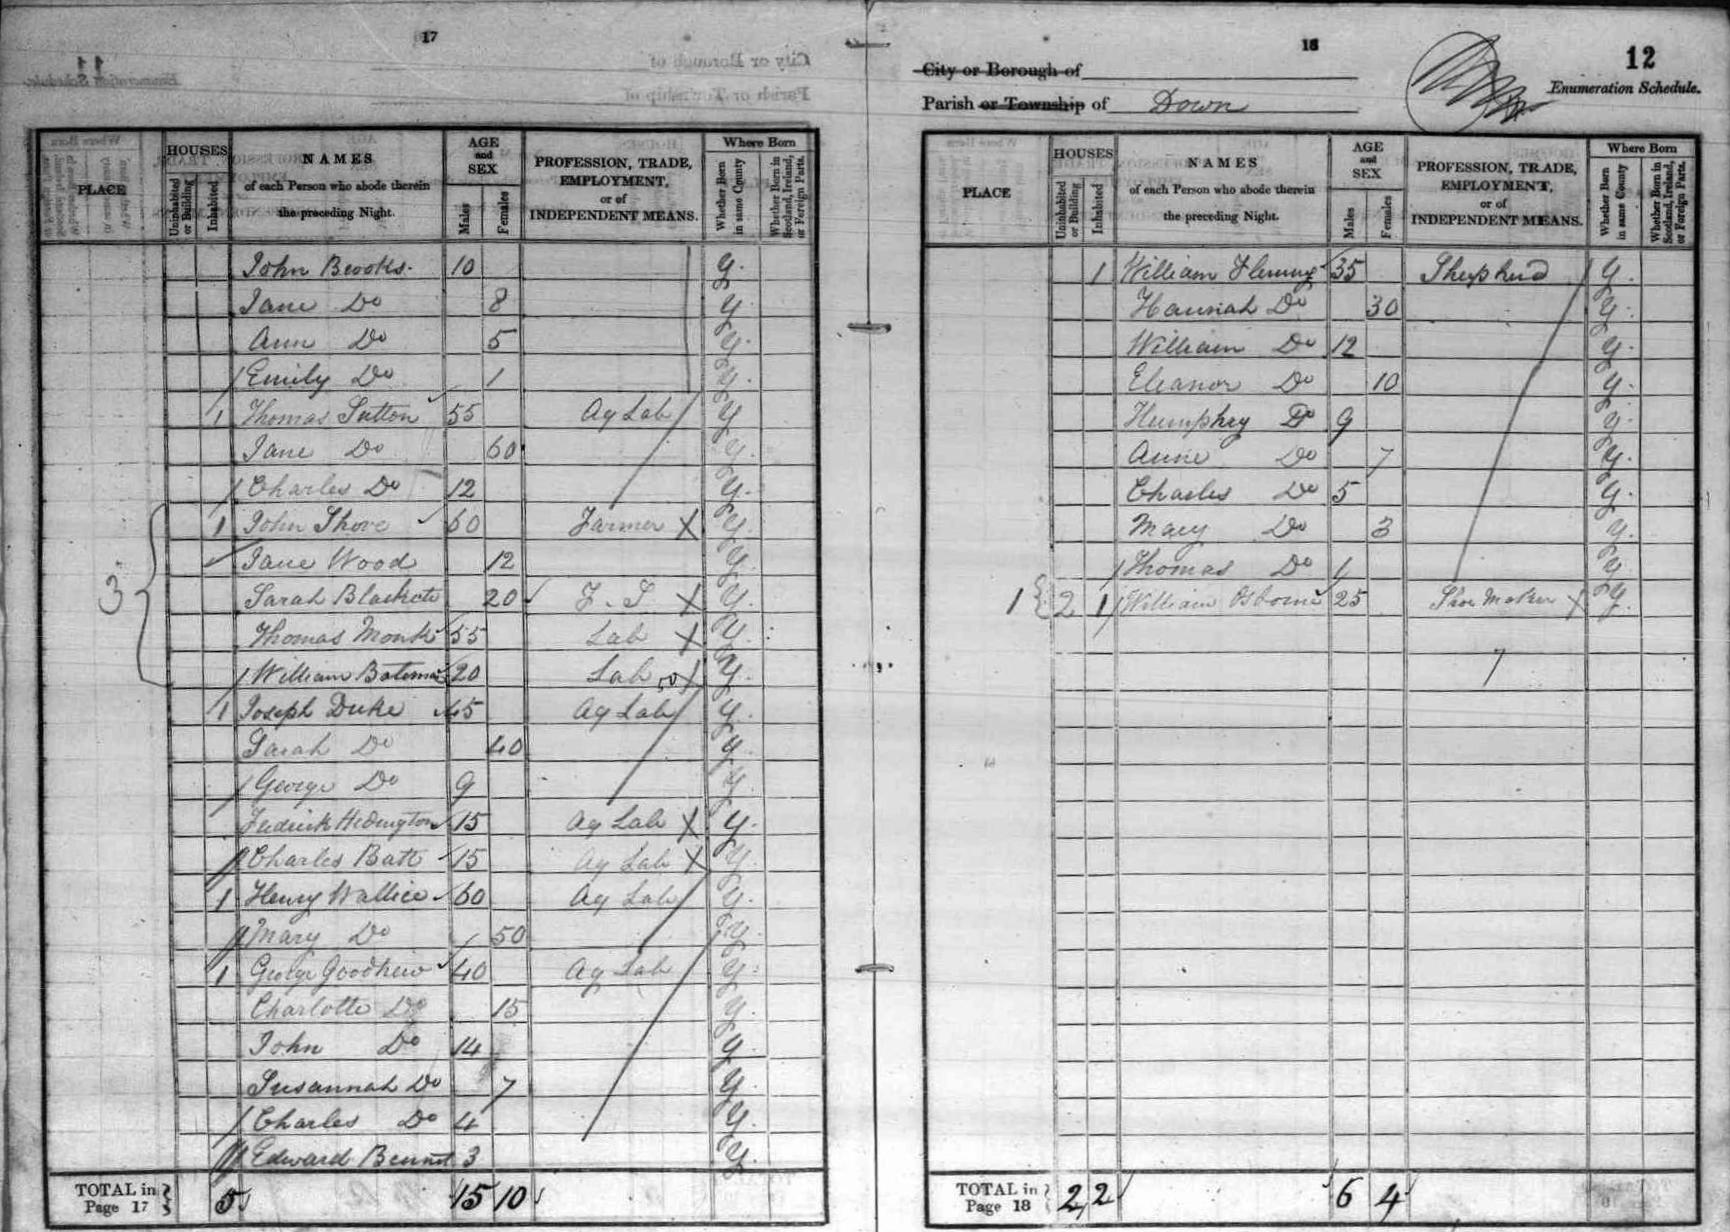 17
HOUSES
NAMES
AGE and SEX
PROFESSION, TRADE, EMPLOYMENT, or of INDEPENDENT MEANS.
Where Born
PLACE
Uninhabited or Building
Inhabited
of each Person who abode therein the preceding Night.
Males
Females
Whether Born in same County
Whether Born in Scotland, Ireland, or Foreign Parts.
John Brooks. 10 y.
Jane Do 8 y
Ann Do 5 y.
Emily Do 1 y.
1 Thomas Sutton 55 Ag Lab y
Jane Do 60 y.
Charles Do 12 y.
3 1 John Shove 60 Farmer X y.
Jane Wood 12 y.
Sarah 20 F. S X y.
Thomas Monk 55 Lab X y.
William Batema 20 Lab X y.
1 Joseph Duke 45 Ag Lab y.
Sarah Do 40 y.
George Do 9 y.
Fredrick Hedington 15 Ag Lab X y.
Charles Batt 15 Ag Lab X y.
1 Henry Wallice 60 Ag Lab y.
Mary Do 50 y.
1 George Goodhew 40 Ag Lab y.
Charlotte Do 15 y.
John Do 14 y.
Susannah Do 7 y.
Charles Do 4 y.
Edward Bennet 3 y.
TOTAL in Page 17 } 5 15 10
18
12
Enumeration Schedule.
City or Borough of
Parish or Township of Down
HOUSES
NAMES
AGE and SEX
PROFESSION, TRADE, EMPLOYMENT, or of INDEPENDENT MEANS.
Where Born
PLACE
Uninhabited or Building
Inhabited
of each Person who abode therein the preceding Night.
Males
Females
Whether Born in same County
Whether Born in Scotland, Ireland, or Foreign Parts.
1 William Fleming 35 Shepherd y.
Hannah Do 30 y.
William Do 12 y.
Eleanor Do 10 y.
Humphrey Do 9 y.
Anne Do 7 y.
Charles Do 5 y.
Mary Do 3 y.
Thomas Do 1 y
1 { 2 1 William Osborne 25 Shoe Maker X y.
7
TOTAL in Page 18 } 2 2 6 4